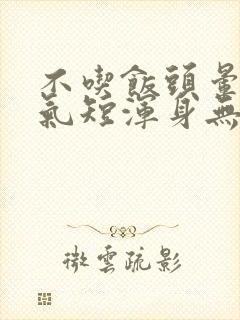 不喫飯頭暈
氣短渾身無
微雲疏影